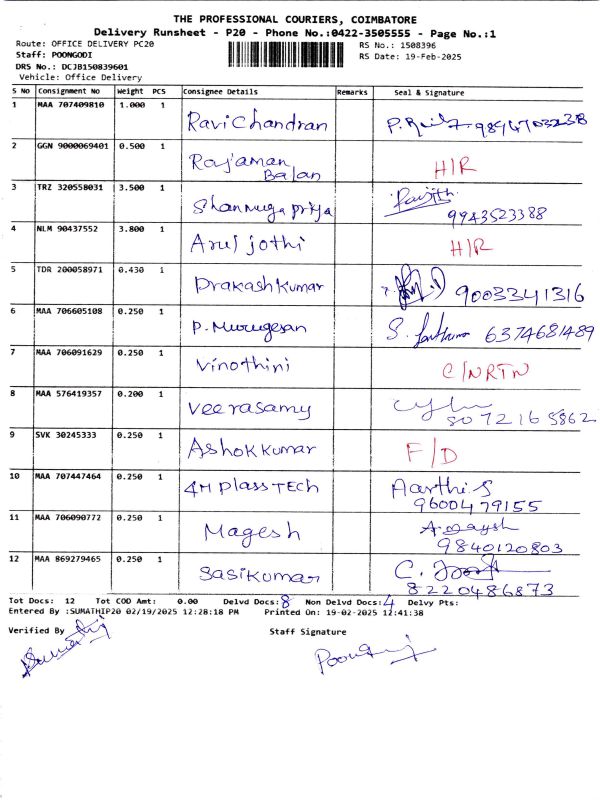 THE PROFESSIONAL COURIERS, COIMBATORE
Delivery Runsheet - P20 - Phone No.:0422-3505555 - Page No.:1
Route: OFFICE DELIVERY PC20 RS No.: 1508396
Staff: POONGODI RS Date: 19-Feb-2025
DRS No.: DCJB150839601
Vehicle: Office Delivery
S No Consignment No Weight PCS Consignee Details Remarks Seal & Signature
1 MAA 707409810 1.000 1 RaviChandran
2 GGN 9000069401 0.500 1 Rajaman Balan H/R
3 TRZ 320558031 3.500 1 Shanmuga priya 9943523388
4 NLM 90437552 3.800 1 Arul jothi H/R
5 TDR 200058971 0.430 1 Prakash kumar 9003341316
6 MAA 706605108 0.250 1 P. Murugesan 6374681489
7 MAA 706091629 0.250 1 Vinothini C/NRTN
8 MAA 576419357 0.200 1 Veerasamy 8072165862
9 SVK 30245333 0.250 1 Ashok kumar F/D
10 MAA 707447464 0.250 1 4M plassTech Aarthi S 9600479155
11 MAA 706090772 0.250 1 Magesh 9840120803
12 MAA 869279465 0.250 1 Sasikumar 8220486873
Tot Docs: 12 Tot COD Amt: 0.00 Delvd Docs: 8 Non Delvd Docs: 4 Delvy Pts:
Entered By :SUMATHIP20 02/19/2025 12:28:18 PM Printed On: 19-02-2025 12:41:38
Verified By Staff Signature